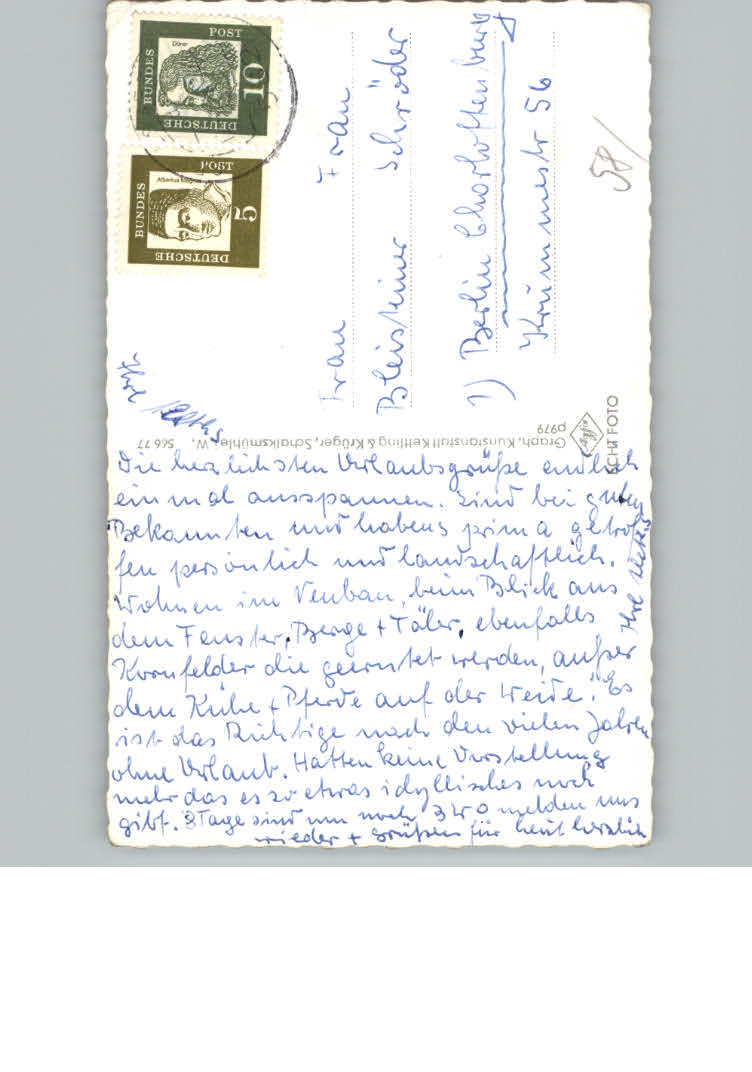 Die herzlichsten Urlaubsgrüße endlich
einmal ausspannen. Sind bei guten
Bekannten und habens prima getrof
fen persönlich und landschaftlich.
Wohnen im Neubau, beim Blick aus
dem Fenster, Berge + Täler, ebenfalls
Kornfelder die geerntet werden, außer
dem Kühe + Pferde auf der Weide. Es
ist das Richtige nach den vielen Jahren
ohne Urlaub. Hatten keine Vorstellung
mehr das es so etwas idyllisches noch
gibt. 8 Tage sind um noch 3 Wo melden uns
wieder + Grüßen für heut herzlich
Ihre
Ihre
Frau Frau
Bleisteiner Schröder
1) Berlin Charlottenburg
Krummestr 56
58/
DEUTSCHE BUNDES POST
10
Dürer
DEUTSCHE BUNDES POST
5
Albertus Magnus
Graph. Kunstanstalt Kettling & Krüger, Schalksmühle i. W. 566 77
p979
ECHT FOTO